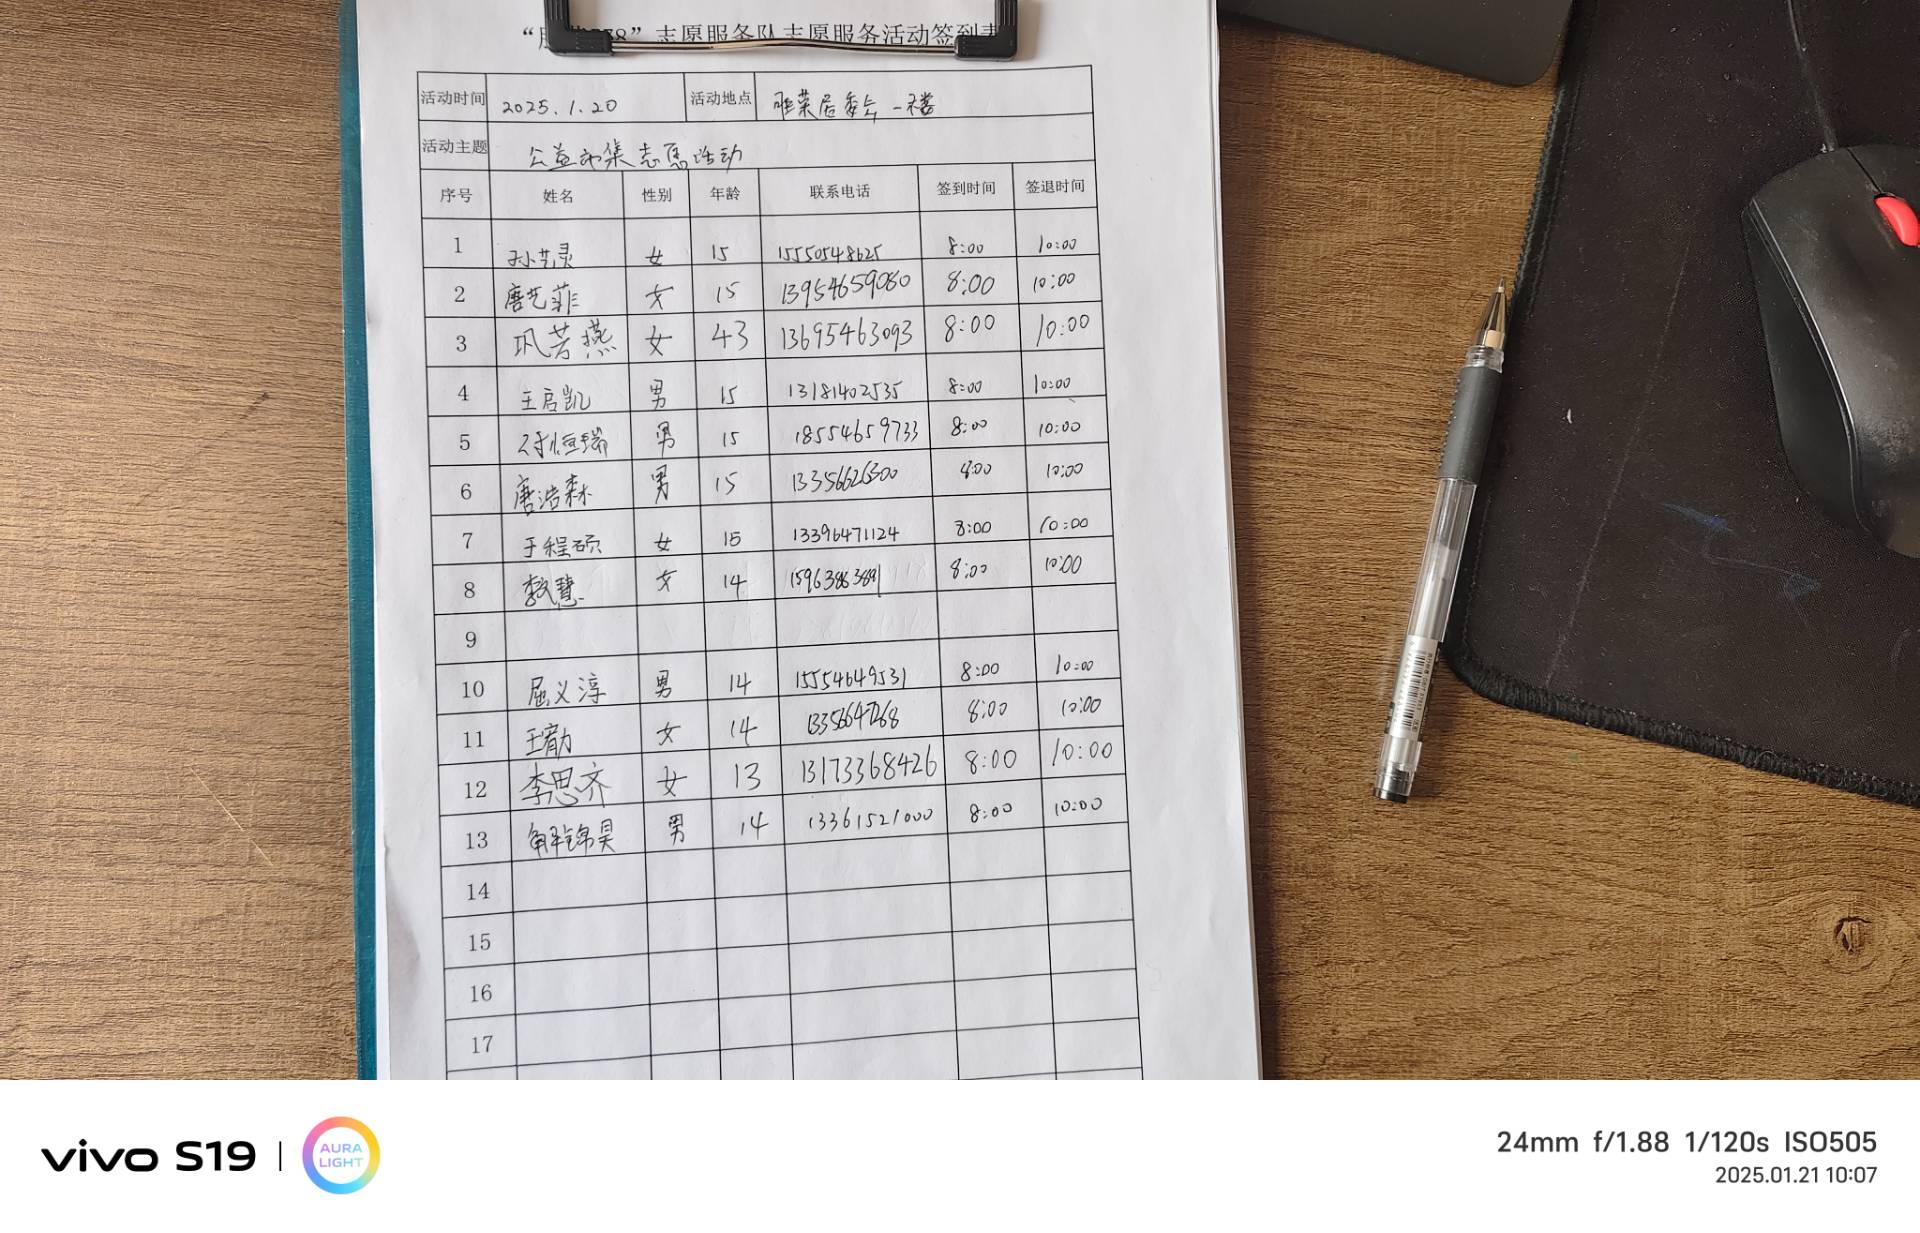 志愿服务队志愿服务活动签到表
活动时间 2025.1.20 活动地点 居委会一楼
活动主题 公益市集志愿活动
序号 姓名 性别 年龄 联系电话 签到时间 签退时间
1 孙艺灵 女 15 15550548625 8:00 10:00
2 唐艺菲 女 15 13954659080 8:00 10:00
3 巩芳燕 女 43 13695463093 8:00 10:00
4 王启凯 男 15 13181402535 8:00 10:00
5 付恒瑞 男 15 18554659733 8:00 10:00
6 唐浩森 男 15 13356626300 8:00 10:00
7 于程硕 女 15 13396471124 8:00 10:00
8 女 14 8:00 10:00
9
10 屈义淳 男 14 15554649531 8:00 10:00
11 女 14 8:00 10:00
12 李思齐 女 13 13173368426 8:00 10:00
13 解锦昊 男 14 13361521000 8:00 10:00
14
15
16
17
vivo S19 | AURA LIGHT
24mm f/1.88 1/120s ISO505
2025.01.21 10:07